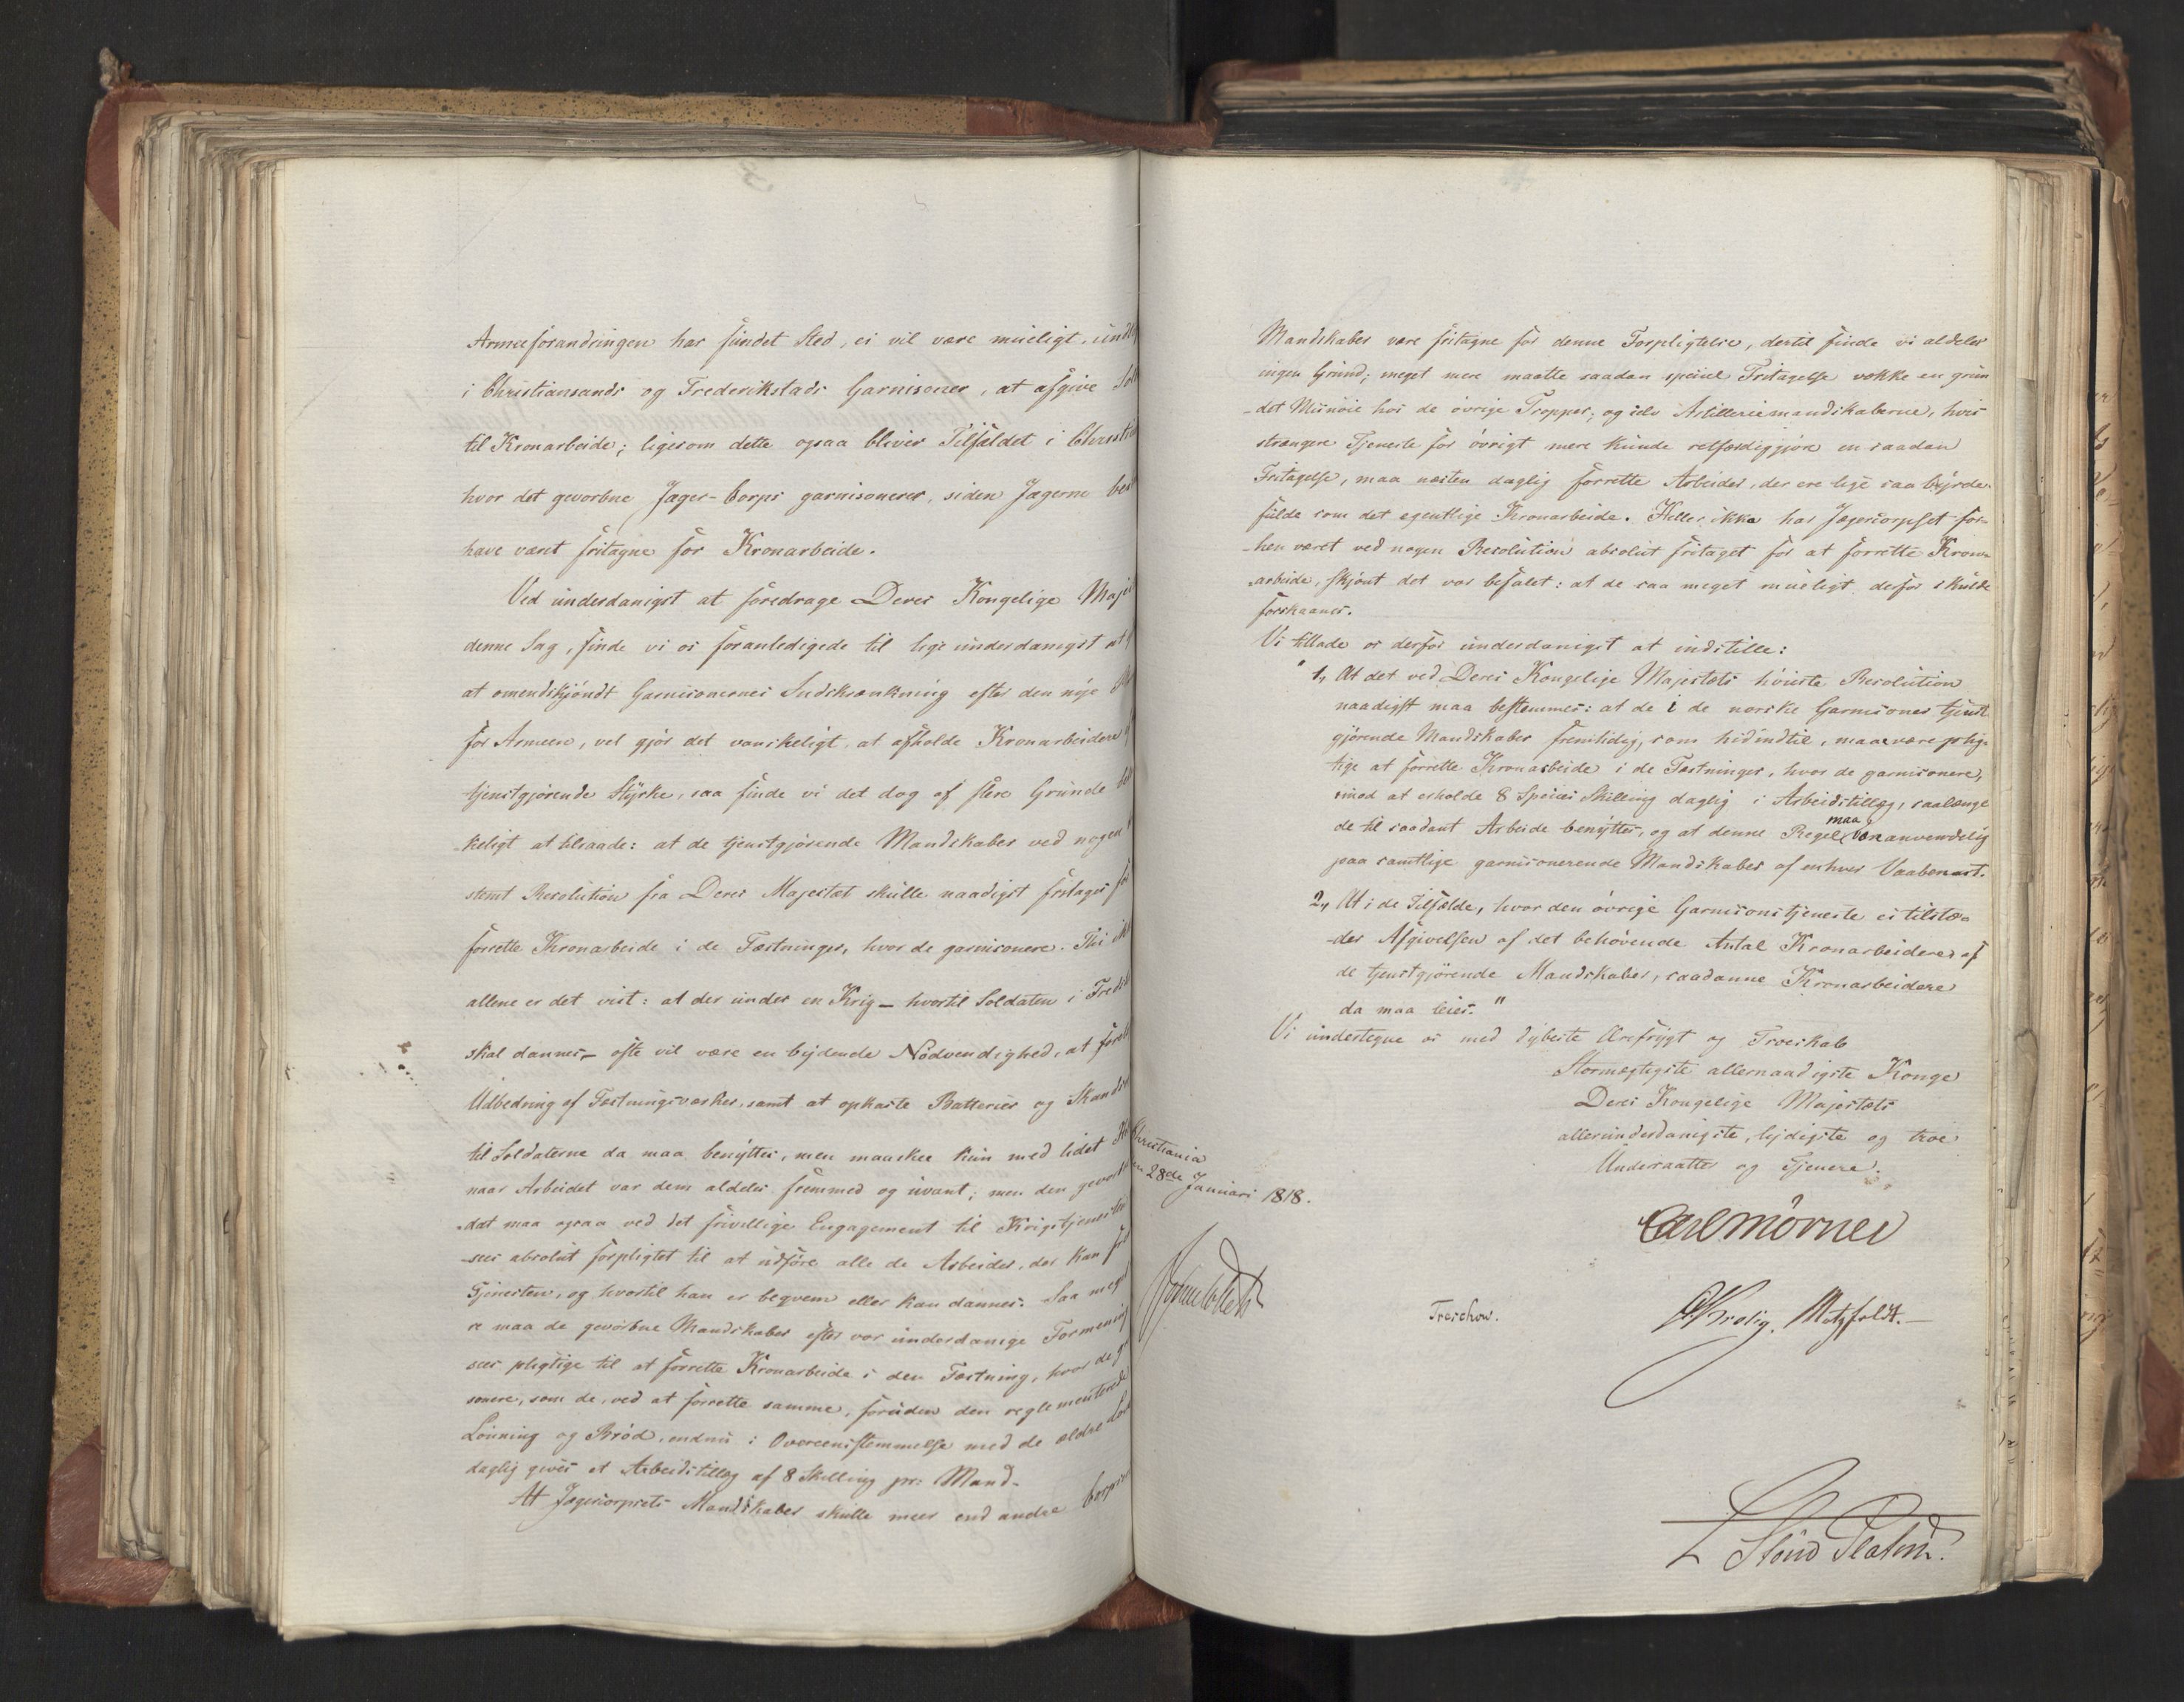 Armeeforandringen har fundet Sted, ei vil være mueligt,
i Christiansands og Frederikstads Garnisoner, at afgive
til Kronarbeide; ligesom dette ogsaa bliver Tilfældet i
hvor det gevorbne Jæger-Corps garnisonerer, siden Jægerne
have været fritagne for Kronarbeide.
Ved underdanigst at foredrage Deres Kongelige
denne Sag, finde vi os foranledigede til lige underdanigst at
at omendskjöndt Garnisonernes Indskrænkning efter den nye
for Armeen, vel gjör det vanskeligt, at afholde Kronarbeidere
tjenstgjörende Styrke, saa finde vi det dog af flere Grunde
keligt at tilraade: at de tjenstgjörende Mandskaber ved nogen
stemt Resolution fra Deres Majestæt skulle naadigst fritages
forrette Kronarbeide i de Fæstninger, hvor de garnisonere. Thi
allene er det vist: at der under en Krig – hvortil Soldaten i
skal dannes – ofte vil være en bydende Nödvendighed, at
Udbedring af Fæstningsværker, samt at opkaste Batterier og
til Soldaterne da maa benyttes, men maaskee kun med lidet
naar Arbeidet var dem aldeles fremmed og uvant; men den
-dat maa ogsaa ved det frivillige Engagement til
-sees absolut forpligtet til at udföre alle de Arbeider, der kan
Tjenesten, og hvortil han er beqvem eller kan dannes. Saa
re maa de gevorbne Mandskaber efter vor underdanige Formening
sees pligtige til at forrette Kronarbeide i den Fæstning, hvor de
sonere, som de, ved at forrette samme, foruden den reglementerede
Lönning og Bröd, endnu i Overeenstemmelse med de ældre
daglig gives et Arbeidstillæg af 8 Skilling pr: Mand.
At Jægercorpsets Mandskaber skulle meer end andre
Mandskaber være fritagne for denne Forpligtelse, dertil finde vi aldeles
ingen Grund; meget mere maatte saadan speciel Fritagelse vække en grun
-det Misnöie hos de övrige Tropper; og selv Artilleriemandskaberne, hvis
strængere Tjeneste for övrigt mere kunde retfærdiggjöre en saadan
Fritagelse, maa næsten daglig forrette Arbeider, der ere lige saa byrde-
fulde som det egentlige Kronarbeide. Heller ikke har Jægercorpset for-
-hen været ved nogen Resolution absolut fritaget for at forrette Kron-
-arbeide, skjönt det var befalet: at de saa meget mueligt derfor skulde
forskaanes.
Vi tillade os derfor underdanigst at indstille:
" 1, At det ved Deres Kongelige Majestæts höieste Resolution
naadigst maa bestemmes: at de i de norske Garnisoner tjenst
gjörende Mandskaber fremtidig, som hidindtil, maae være plig-
tige at forrette Kronarbeide i de Fæstninger, hvor de garnisonere,
imod at erholde 8 Species Skilling daglig i Arbeidstillæg, saalænge
de til saadant Arbeide benyttes, og at denne Regel maa være anvendelig
paa samtlige garnisonerende Mandskaber af enhver Vaabenart.
2, At i de Tilfælde, hvor den övrige Garnisonstjeneste ei tilstæ-
-der Afgivelsen af det behövende Antal Kronarbeidere af
de tjenstgjörende Mandskaber, saadanne Kronarbeidere
da maa leies. "
Vi undertegne os med dybeste Ærefrygt og Troeskab
Stormægtigste allernaadigste Konge
Deres Kongelige Majestæts
allerunderdanigste, lydigste og troe
Undersaatter og Tjenere.
Christiania
28de Januari 1818.
Carl Mörner
Treschow.
Motzfeldt.